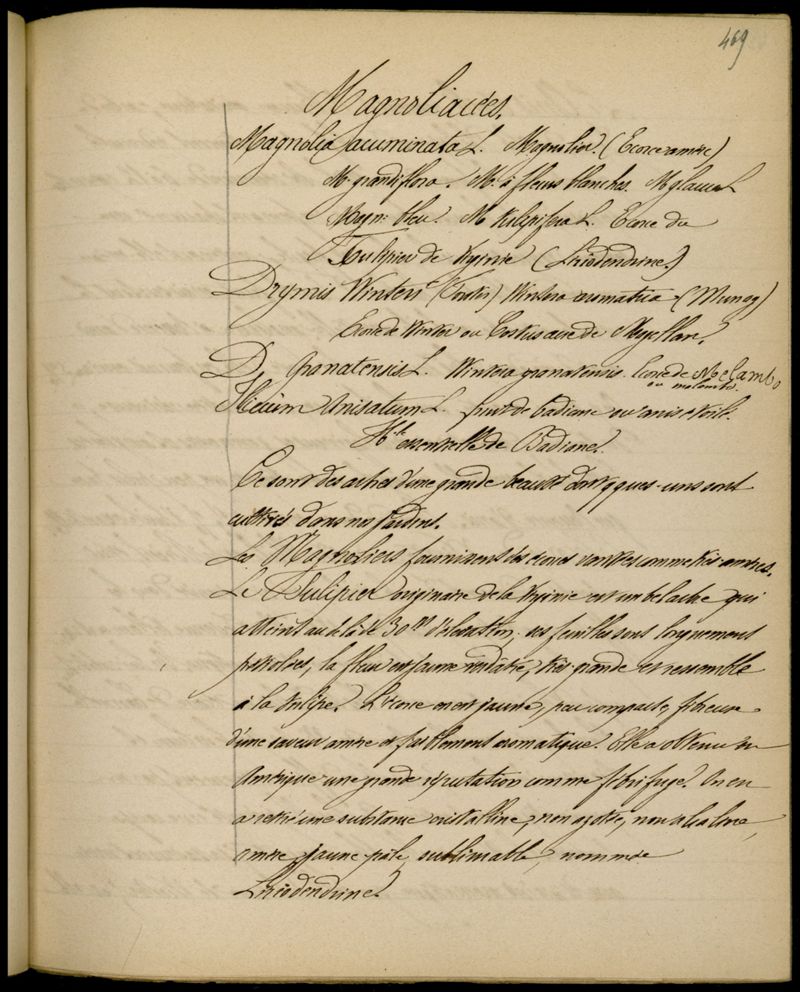 469
Magnoliacées.
Magnolia acuminata L. Magnolier. (Ecorce amère)
M. grandiflora. M. à fleurs blanches. M glauca L
Magn. bleu. M tulipifera L. Ecorce du
Tulipier de Virginie (Liriodendrine.)
Drymis Winteri (Forster) Wintera aromatica (Murray)
Ecorce de Winter ou Costus acre de Magellan.
D. Granatensis L. Wintera granatensis. Ecorce de Melambo
ou malambo.
Illicium Anisatum L. fruit de badiane ou anis étoilé.
Hle essentielle de Badiane.
Ce sont des arbres d'une grande beauté dont qques-uns sont
cultivés dans nos jardins.
Les Magnoliers fournissent des écorces vantées comme très amères.
Le Tulipier originaire de la Virginie est un bel arbre qui
atteint au delà de 30m d'élévation. ses feuilles sont longuement
pétiolées, la fleur est jaune verdâtre, très grande et ressemble
à la tulipe. L'écorce en est jaune, peu compacte, fibreuse
d'une saveur amère et faiblement aromatique. Elle a obtenu en
Amérique une grande réputation comme fébrifuge. On en
a retiré une substance cristalline, non azotée, non alcaline,
amère, jaune pâle, sublimable, nommée
Liriodendrine.